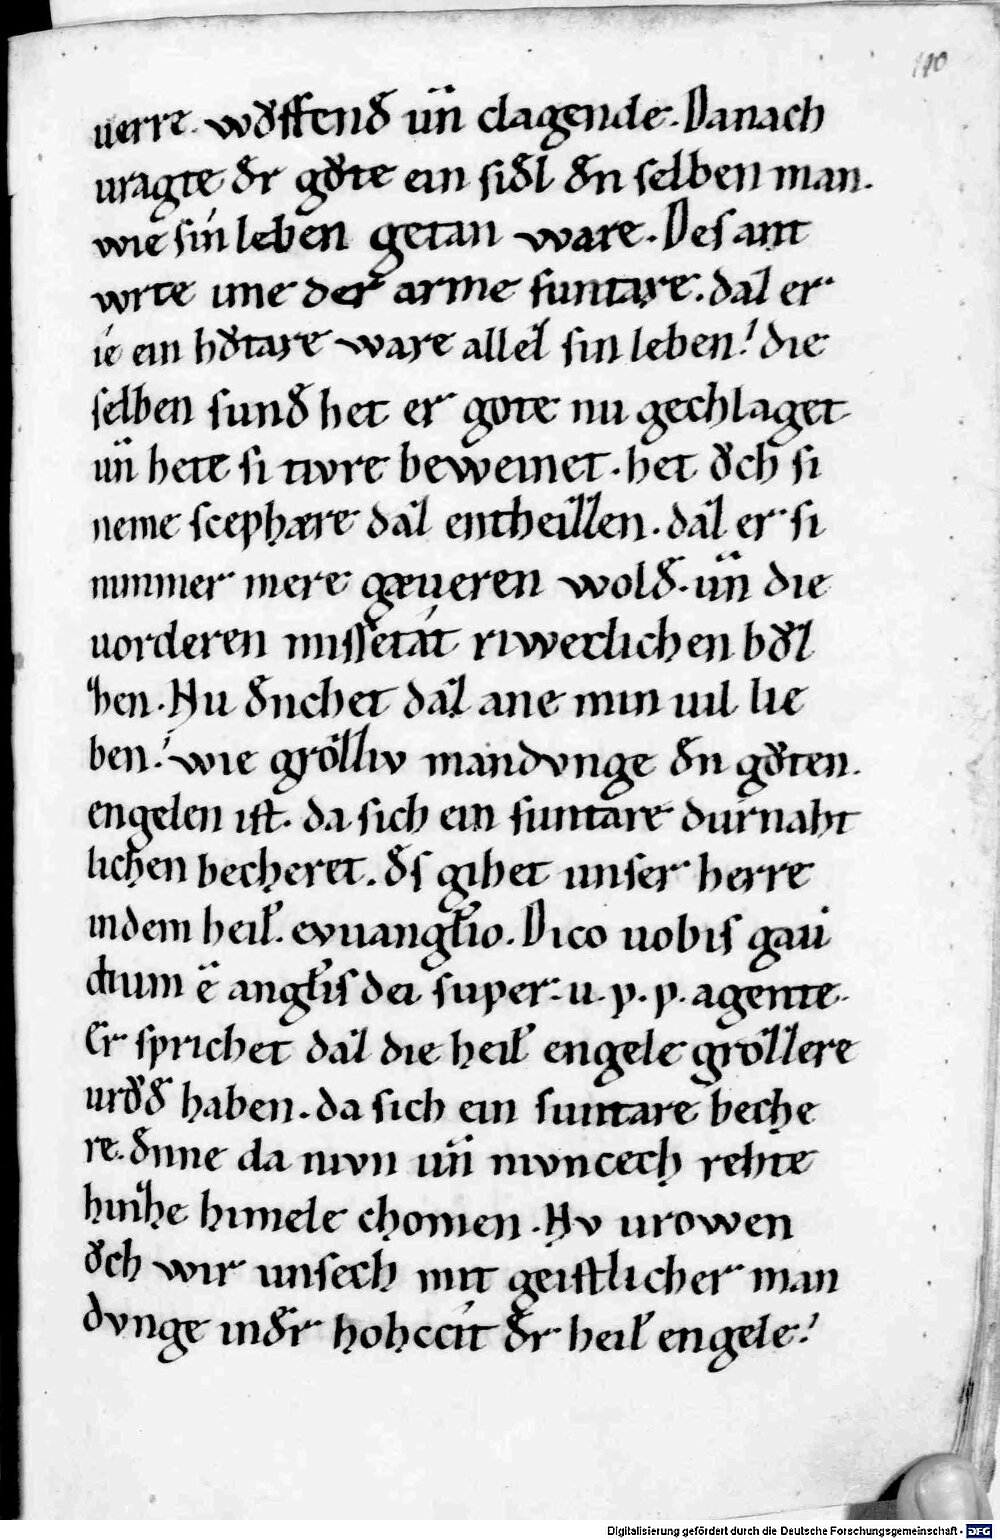 110
uerre. wo̊ffend̄ un̄ clagende. Danach
uragte d̄r go̊te ein sid̄l d̄n selben man.
wie sín leben getan ware. Des ant
wrte ime der arme suntare. daz er
ie ein ho̊rare ware allez sin leben! die
selben sund̄ het er gote nu gechlaget
un̄ hete si tivre beweinet. het o̊ch si
neme scephære daz entheizzen. daz er si
nimmer mere gæueren wold̄. un̄ die
uorderen missetát riweclichen bo̊z
zen. Nu d̄nchet daz ane min uil lie
ben! wie grozziv mandvnge d̄n go̊ten.
engelen ist. da sich ein suntare durnaht
lichen becheret. d̄s gihet unser herre
indem heil̄. evuangl̄io. Dico uobis gau
dium ē angl̄is dei super. u. p. p. agente.
Er sprichet daz die heil̄ engele grozzere
uro̊d̄ haben. da sich ein suntare beche
re. d̄nne da nivn un̄ nivncech rehte
hinze himele chomen. Nv urowen
o̊ch wir unsech mit geistlicher man
dvnge ind̄r hohccit d̄r heil̄ engele!
Digitalisierung gefördert durch die Deutsche Forschungsgemeinschaft - DFG